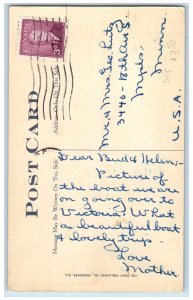 CANADA
POST CARD
Address Only On This Side
Message May Be Written On This Side
Mr. and Mrs. Geo Lutz
3446-18th Ave S.
Mpls.
Minn.
U.S.A.
Dear Bud & Helen:-
Picture of
the boat we are
on going over to
Victoria. What
a beautiful boat
& lovely trip.
Love
Mother.